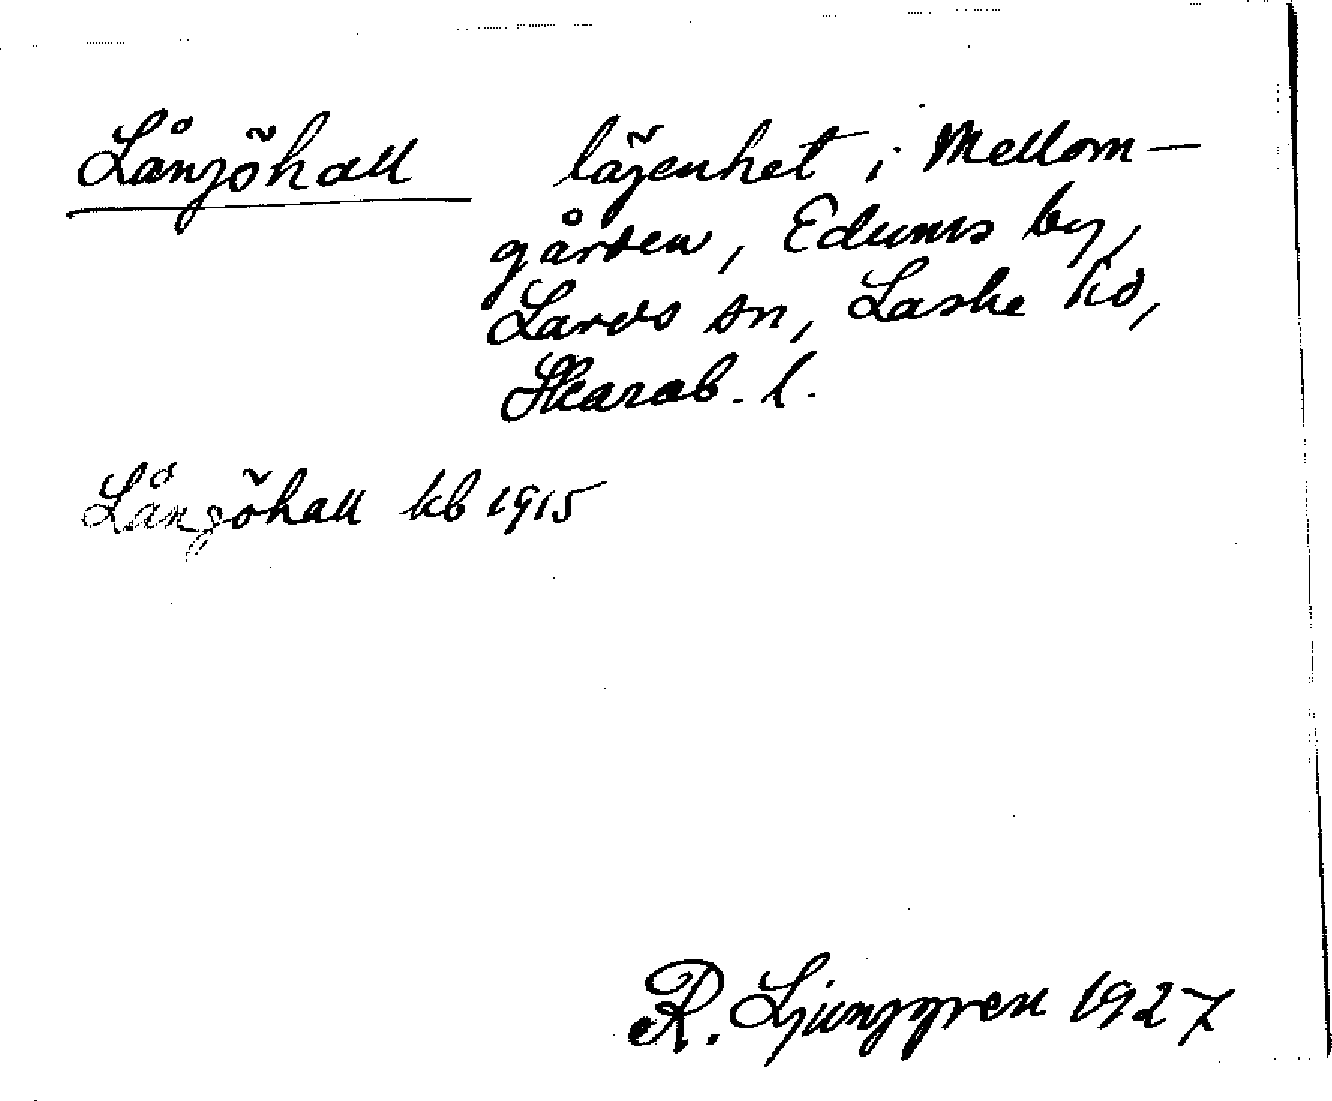 Långöhall lägenhet i Mellom-
gården, Edums by,
Larvs sn, Laske hd,
Skarab. l.
Långöhall kb 1915
R. Ljunggren 1927